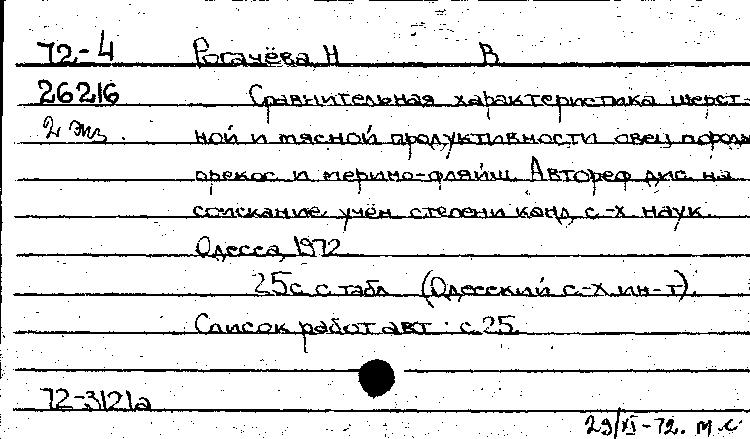 72-4 Рогачёва, Н В
26216 Сравнительная характеристика шерст-
2 экз. ной и мясной продуктивности овец пород
прекос и мерино-фляйш. Автореф дис. на
соискание учен степени канд. с.-х. наук.
Одесса, 1972
25 с. с табл (Одесский с.-х. ин-т).
Список работ авт.: с.25.
72-3121а
29/XI-72. м.с